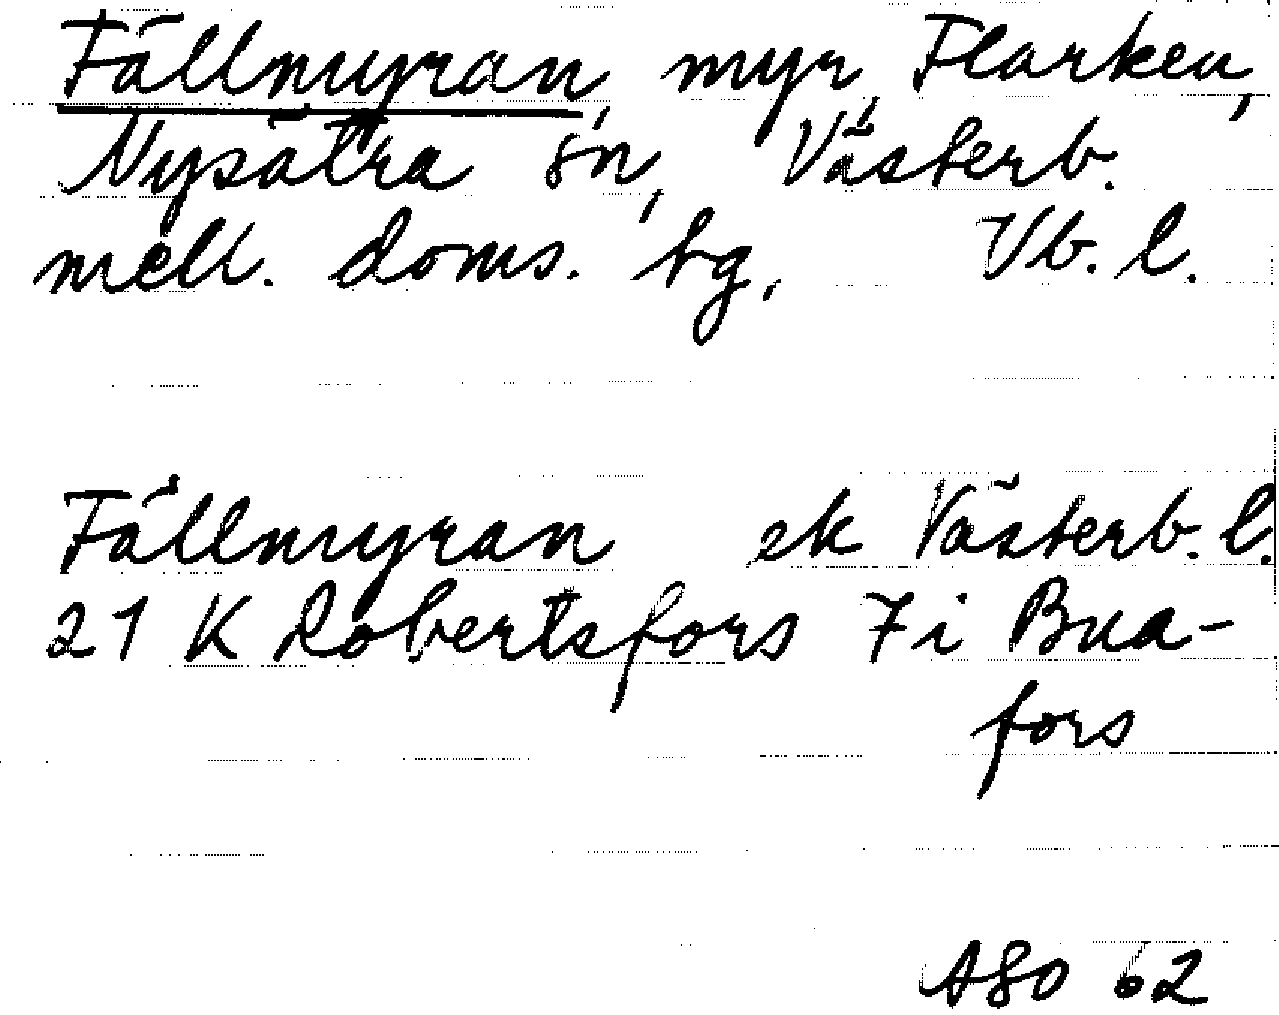 Fällmyran, myr, Flarken,
Nysätra sn, Västerb.
mell. doms. tg, Vb. l.
Fällmyran ek Västerb. l.
21 K Robertsfors 7i Bua-
fors
ASO 62